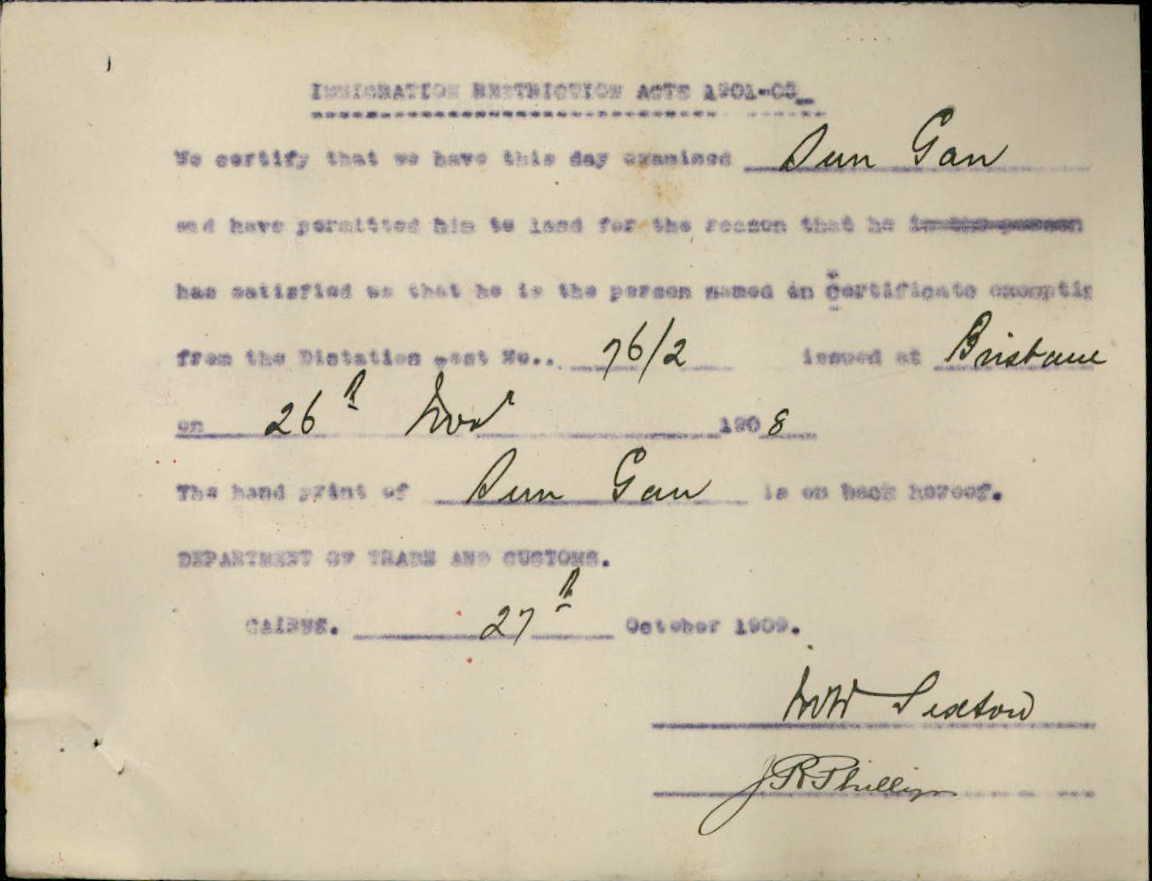 IMMIGRATION RESTRICTION ACTS 1901-08
We certify that we have this day examined Sun Gan
and have permitted him to land for the reason that he is the person
has satisfied us that he is the person named in Certificate exemptin
from the Dictation Test No.. 76/2 issued at Brisbane
on 26th Novr 1908
The hand print of Sun Gan is on back hereof.
DEPARTMENT OF TRADE AND CUSTOMS.
CAIRNS. 27th October 1909.
Sexton
J R Phillips